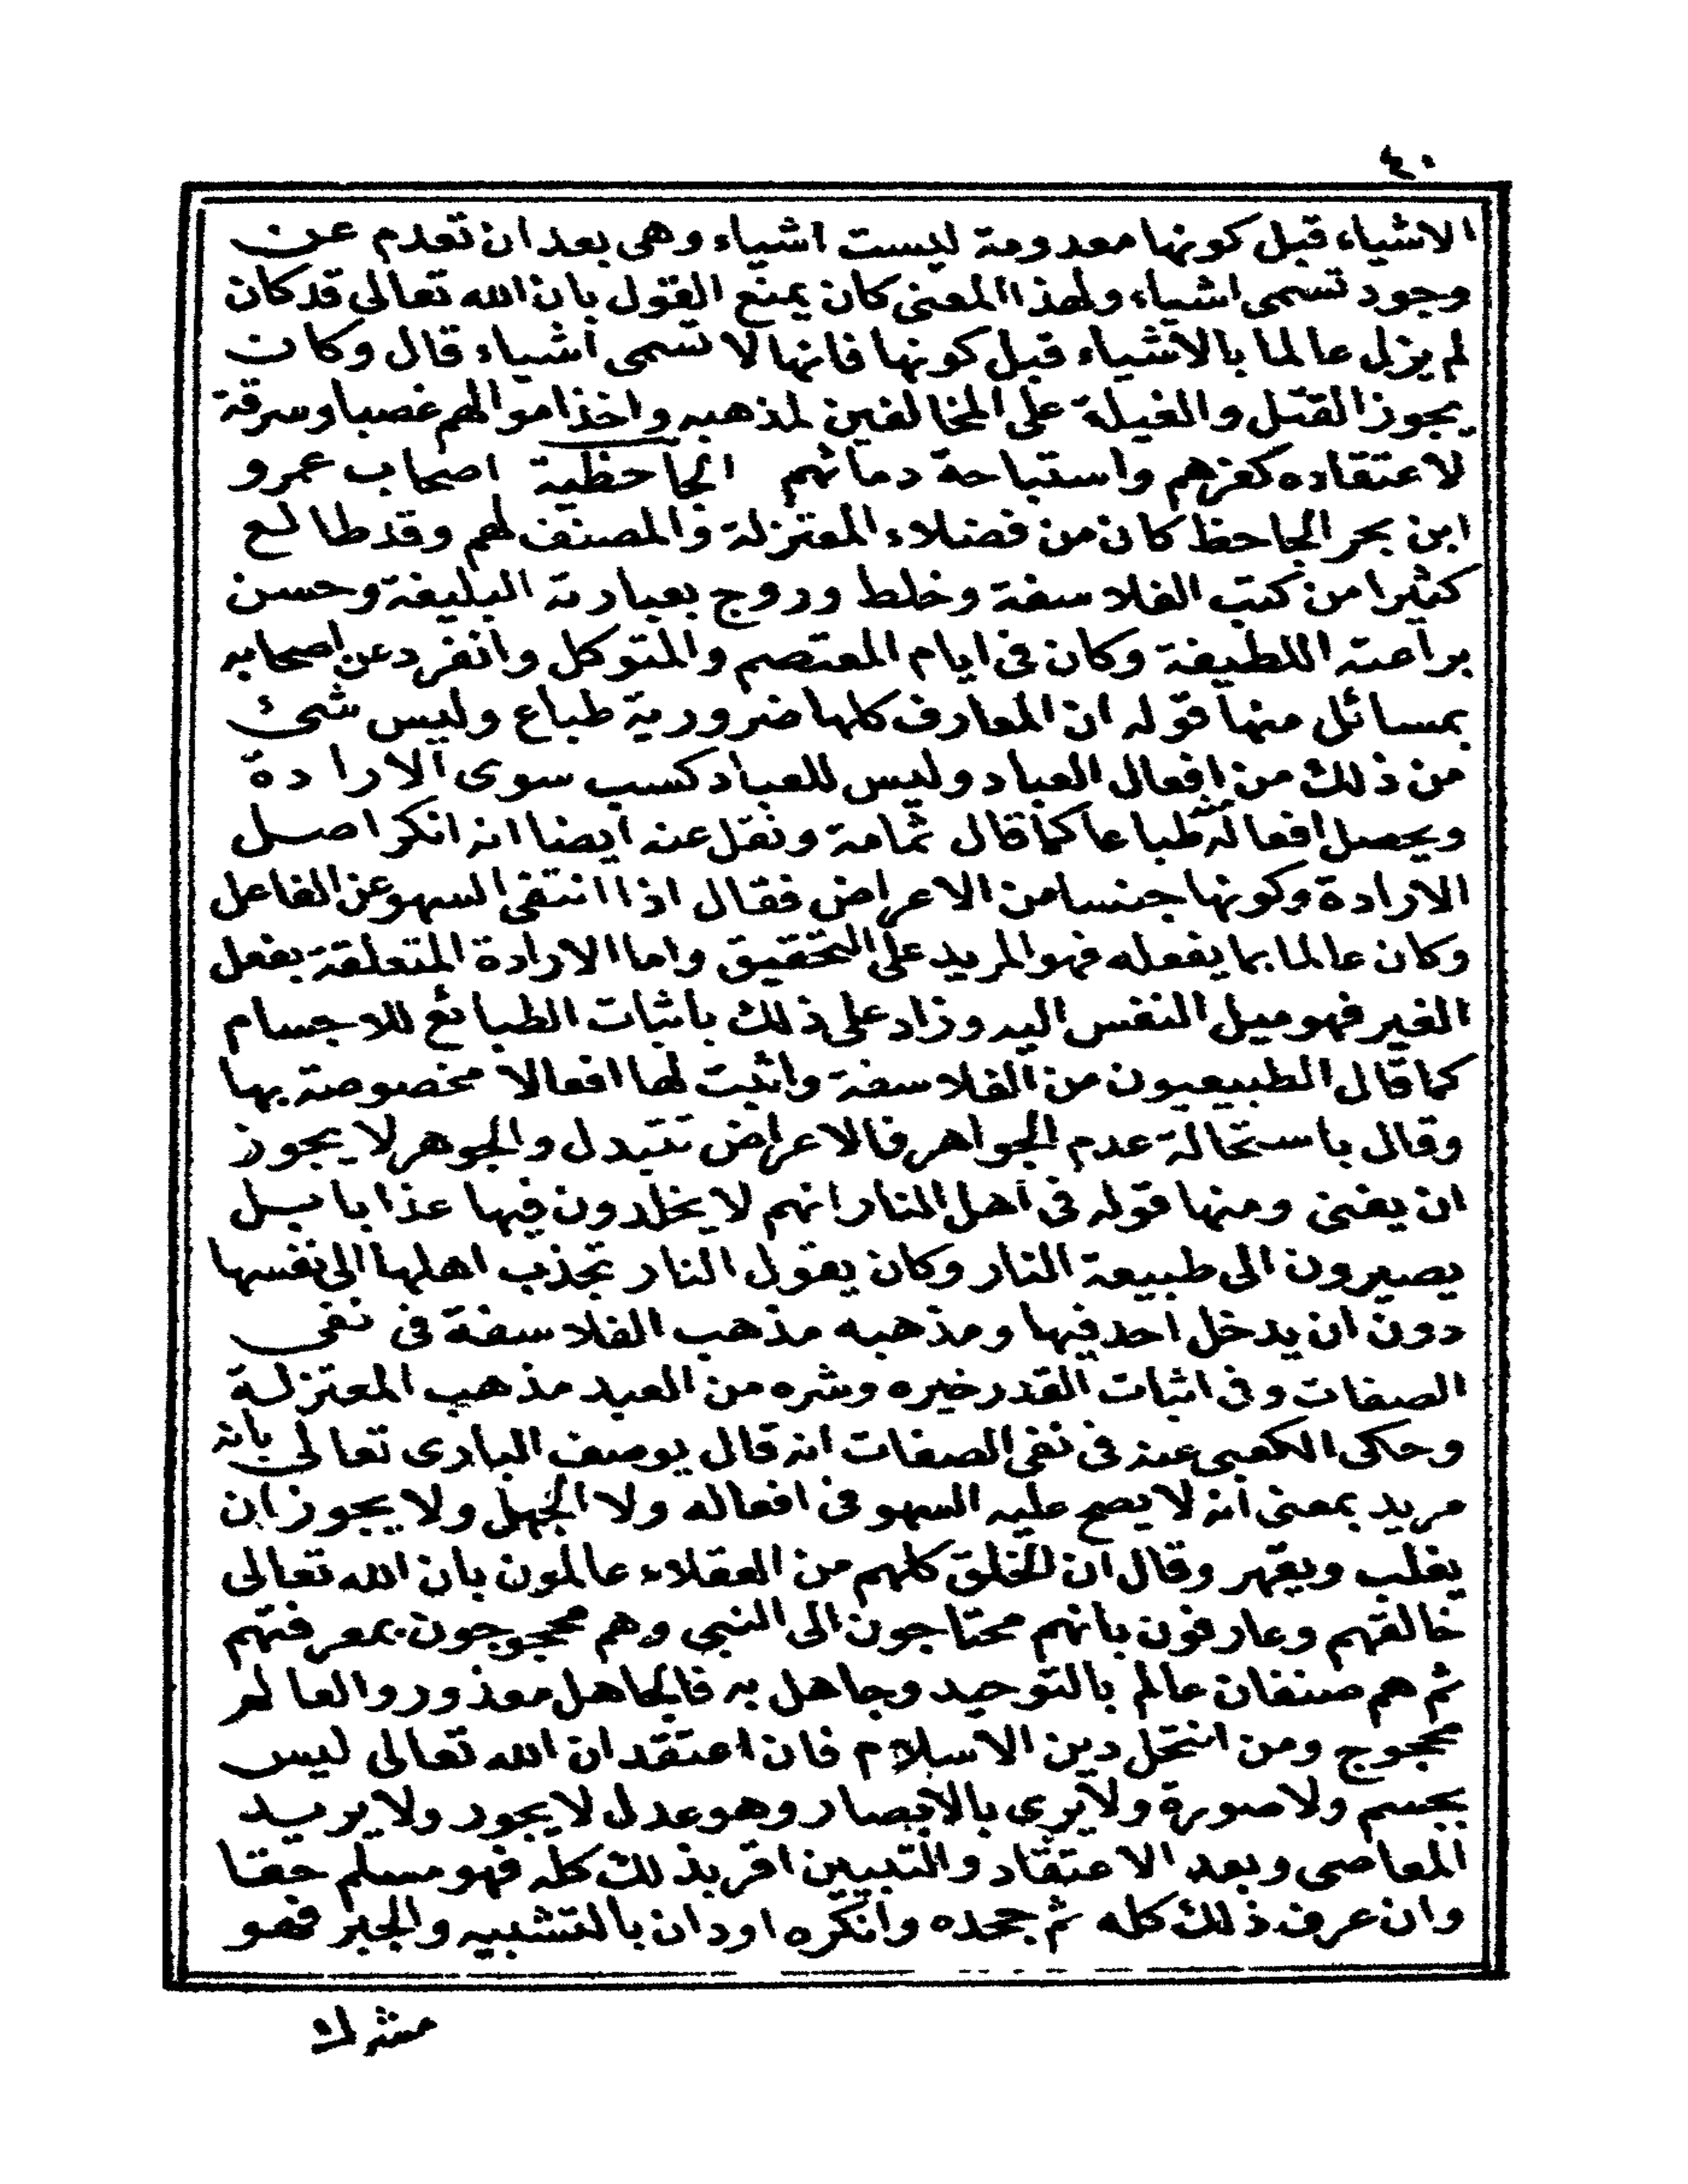 ٤٠
الاشياء قبل كونها معدومة ليست اشياء وهى بعد ان تعدم عن
وجود تسمى اشياء ولهذا المعنى كان يمنع القول بان الله تعالى قد كان
لم يزل عالما بالاشياء قبل كونها فانها لا تسمى اشياء قال وكان
يجوز القتل والغيلة على المخالفين لمذهبه واخذ اموالهم غصبا وسرقة
لاعتقاده كفرهم واستباحة دمائهم الجاحظية اصحاب عمرو
ابن بحر الجاحظ كان من فضلاء المعتزلة والمصنف لهم وقد طالع
كثيرا من كتب الفلاسفة وخلط وروج بعبارته البليغة وحسن
براعته اللطيفة وكان فى ايام المعتصم والمتوكل وانفرد عن اصحابه
بمسائل منها قوله ان المعارف كلها ضرورية طباع وليس شئ
من ذلك من افعال العباد وليس للعباد كسب سوى الارادة
ويحصل افعاله منه طباعا كما قال ثمامة ونقل عنه ايضا انه انكر اصل
الارادة وكونها جنسا من الاعراض فقال اذا انتفى السهو عن الفاعل
وكان عالما بما يفعله فهو المريد على التحقيق واما الارادة المتعلقة بفعل
الغير فهو ميل النفس اليه وزاد على ذلك باثبات الطبائع للاجسام
كما قال الطبيعيون من الفلاسفة واثبت لها افعالا مخصوصة بها
وقال باستحالة عدم الجواهر فالاعراض تتبدل والجوهر لا يجوز
ان يفنى ومنها قوله فى اهل النار انهم لا يخلدون فيها عذابا بل
يصيرون الى طبيعة النار وكان يقول النار تجذب اهلها الى نفسها
دون ان يدخل احد فيها ومذهبه مذهب الفلاسفة فى نفى
الصفات وفى اثبات القدر خيره وشره من العبد مذهب المعتزلة
وحكى الكعبى عنه فى نفى الصفات انه قال يوصف البارى تعالى بانه
مريد بمعنى انه لا يصح عليه السهو فى افعاله ولا الجهل ولا يجوز ان
يغلب ويقهر وقال ان الخلق كلهم من العقلاء عالمون بان الله تعالى
خالقهم وعارفون بانهم محتاجون الى النبى وهم محجوجون بمعرفتهم
ثم هم صنفان عالم بالتوحيد وجاهل به فالجاهل معذور والعالم
محجوج ومن انتحل دين الاسلام فان اعتقد ان الله تعالى ليس
بجسم ولا صورة ولا يرى بالابصار وهو عدل لا يجور ولا يريد
المعاصى وبعد الاعتقاد والتبيين اقر بذلك كله فهو مسلم حقا
وان عرف ذلك كله ثم جحده وانكره او دان بالتشبيه والجبر فهو
مشرك